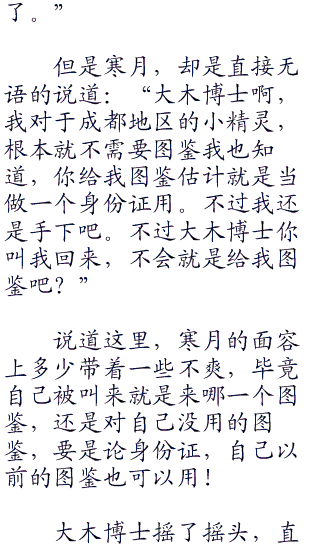 了。”
但是寒月，却是直接无
语的说道：“大木博士啊，
我对于成都地区的小精灵，
根本就不需要图鉴我也知
道，你给我图鉴估计就是当
做一个身份证用。不过我还
是手下吧。不过大木博士你
叫我回来，不会就是给我图
鉴吧？”
说道这里，寒月的面容
上多少带着一些不爽，毕竟
自己被叫来就是来哪一个图
鉴，还是对自己没用的图
鉴，要是论身份证，自己以
前的图鉴也可以用！
大木博士摇了摇头，直